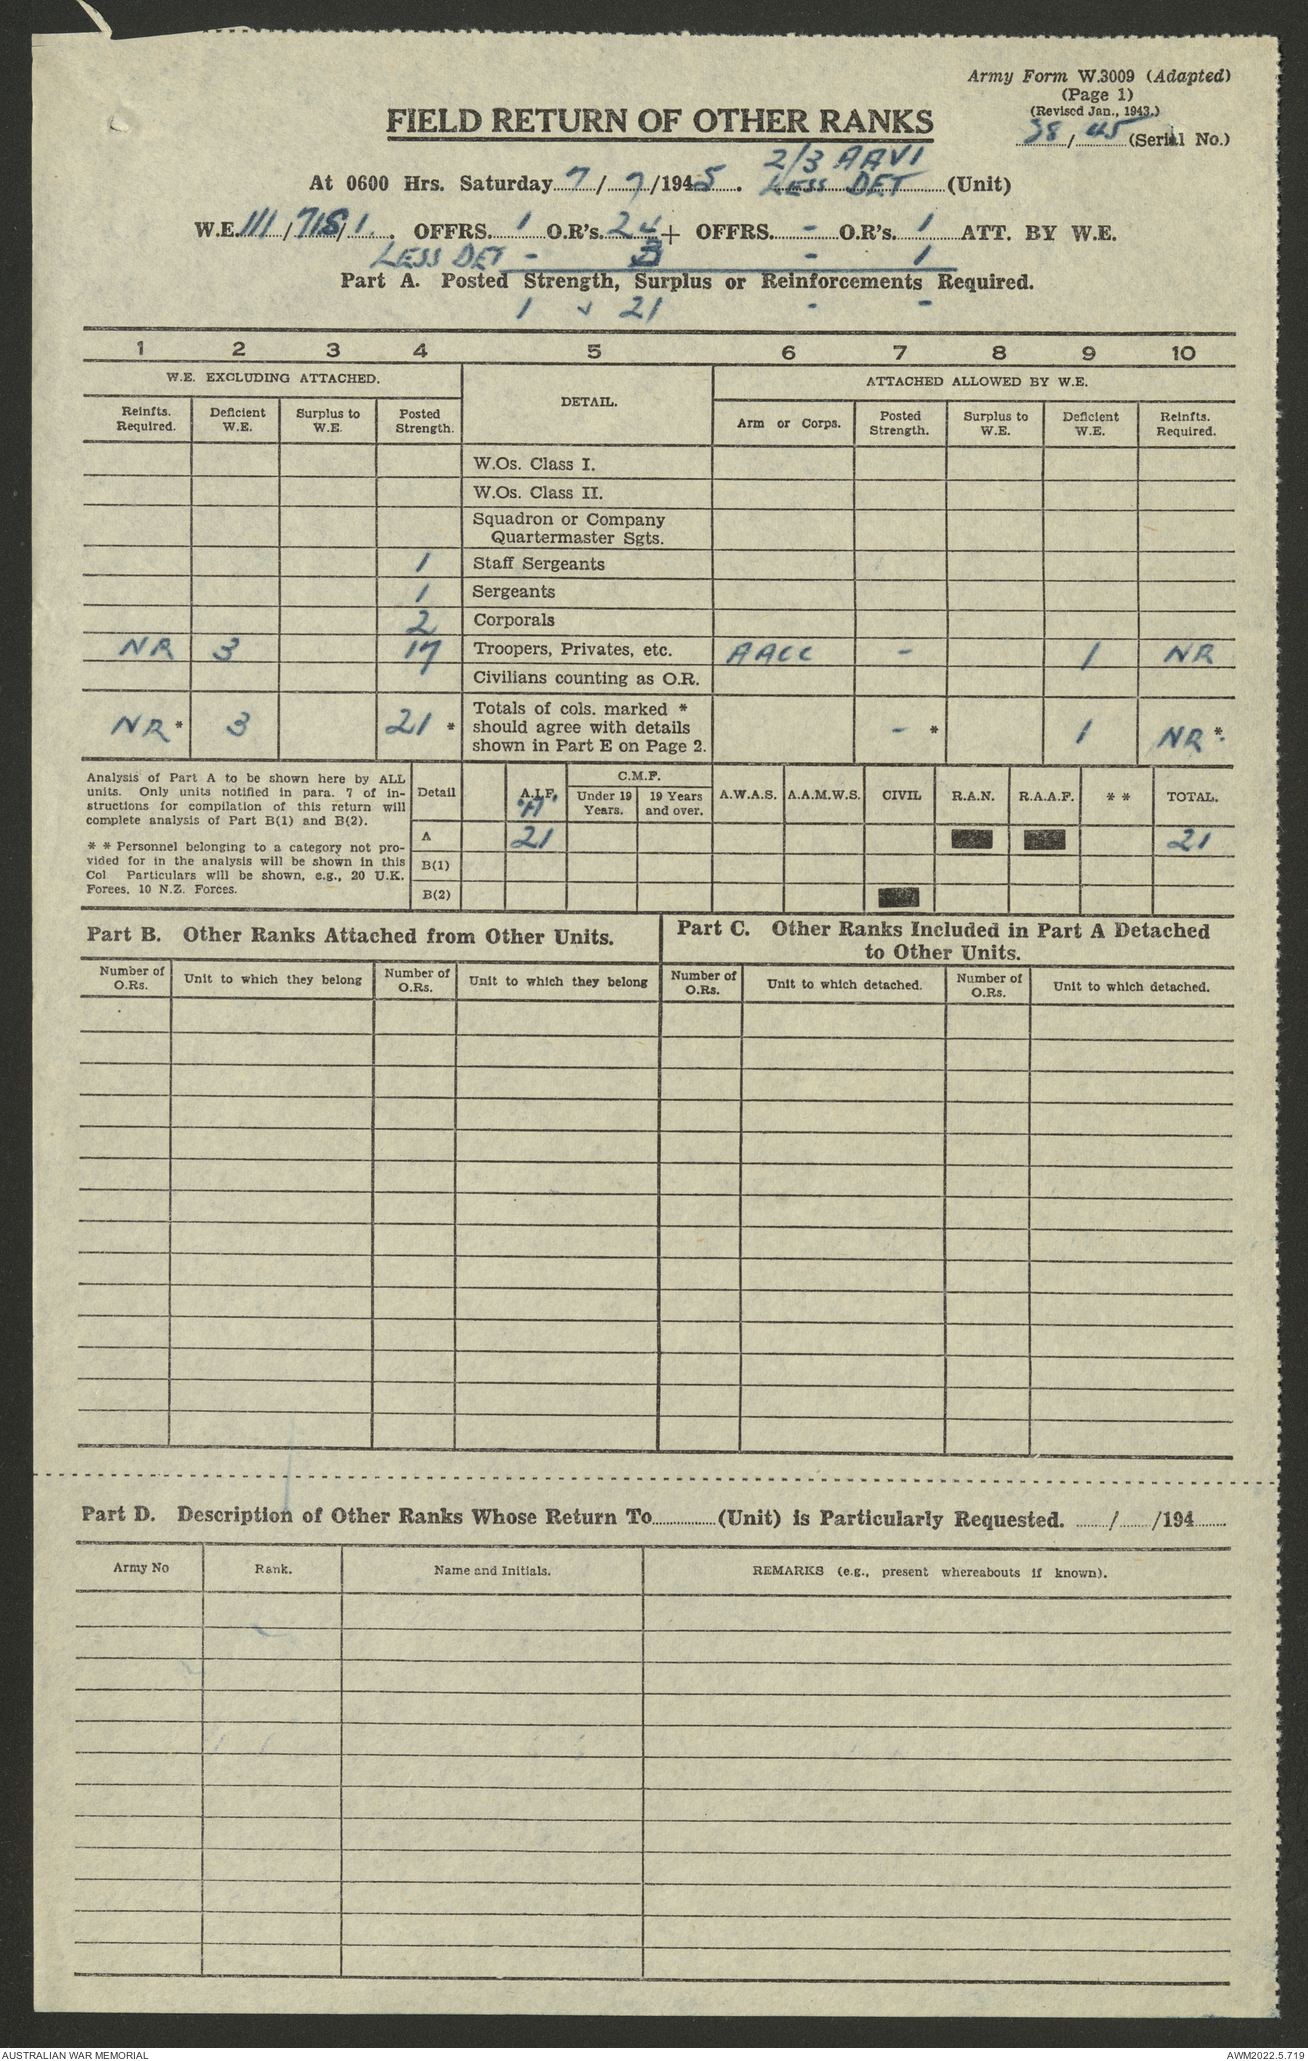 Army Form W.3009 (Adapted)
(Page 1)
(Revised Jan., 1943.)
38 / 45 (Serial No.)
FIELD RETURN OF OTHER RANKS
2/3 AAVI
At 0600 Hrs. Saturday 7 / 7 /1945. LESS DET (Unit)
W.E. 111 / 71S / 1. OFFRS. 1 O.R's. 24 + OFFRS. - O.R's. 1 ATT. BY W.E.
LESS DET - 3 - 1
Part A. Posted Strength, Surplus or Reinforcements Required.
1 + 21 - -
1 2 3 4 5 6 7 8 9 10
W.E. EXCLUDING ATTACHED. DETAIL. ATTACHED ALLOWED BY W.E.
Reinfts. Required. Deficient W.E. Surplus to W.E. Posted Strength. Arm or Corps. Posted Strength. Surplus to W.E. Deficient W.E. Reinfts. Required.
W.Os. Class I.
W.Os. Class II.
Squadron or Company
Quartermaster Sgts.
1 Staff Sergeants
1 Sergeants
2 Corporals
NR 3 17 Troopers, Privates, etc. AACC - 1 NR
Civilians counting as O.R.
NR * 3 21 * Totals of cols. marked * should agree with details shown in Part E on Page 2. - * 1 NR *
Analysis of Part A to be shown here by ALL
units. Only units notified in para. 7 of in-
structions for compilation of this return will
complete analysis of Part B(1) and B(2).
* * Personnel belonging to a category not pro-
vided for in the analysis will be shown in this
Col Particulars will be shown, e.g., 20 U.K.
Forces, 10 N.Z. Forces.
Detail A.I.F. C.M.F. Under 19 Years. 19 Years and over. A.W.A.S. A.A.M.W.S. CIVIL R.A.N. R.A.A.F. * * TOTAL.
A 21 21
B(1)
B(2)
Part B. Other Ranks Attached from Other Units.
Number of O.Rs. Unit to which they belong Number of O.Rs. Unit to which they belong
Part C. Other Ranks Included in Part A Detached
to Other Units.
Number of O.Rs. Unit to which detached. Number of O.Rs. Unit to which detached.
Part D. Description of Other Ranks Whose Return To............(Unit) is Particularly Requested. ....../....../194......
Army No Rank. Name and Initials. REMARKS (e.g., present whereabouts if known).
AUSTRALIAN WAR MEMORIAL AWM2022.5.719